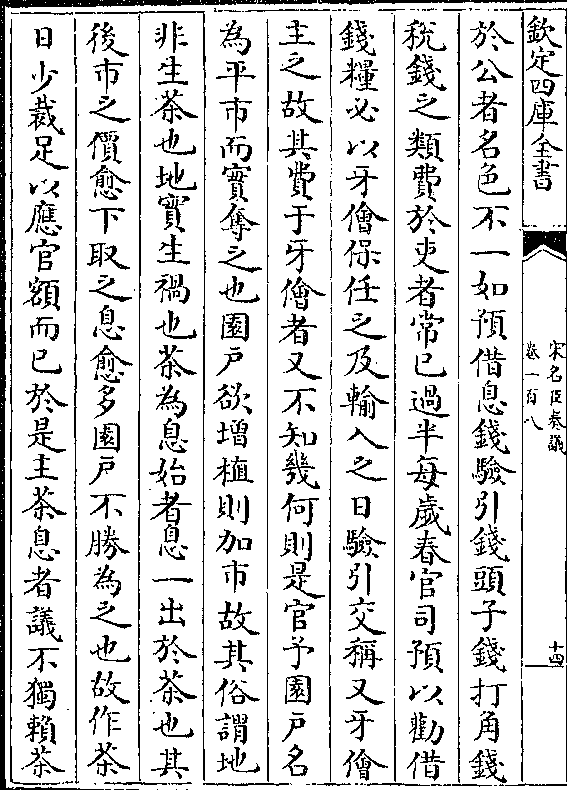 欽定四庫全書
宋名臣奏議
卷一百八
十四
於公者名色不一如預借息錢驗引錢頭子錢打角錢
税錢之類費於吏者常已過半每歲春官司預以勸借
錢糧必以牙儈保任之及輸入之日驗引交稱又牙儈
主之故其費于牙儈者又不知幾何則是官予園戸名
為平市而實奪之也園戸欲增植則加市故其俗謂地
非生茶也地實生禍也茶為息始者息一出於茶也其
後市之價愈下取之息愈多園戸不勝為之也故作茶
日少裁足以應官額而已於是主茶息者議不獨賴茶